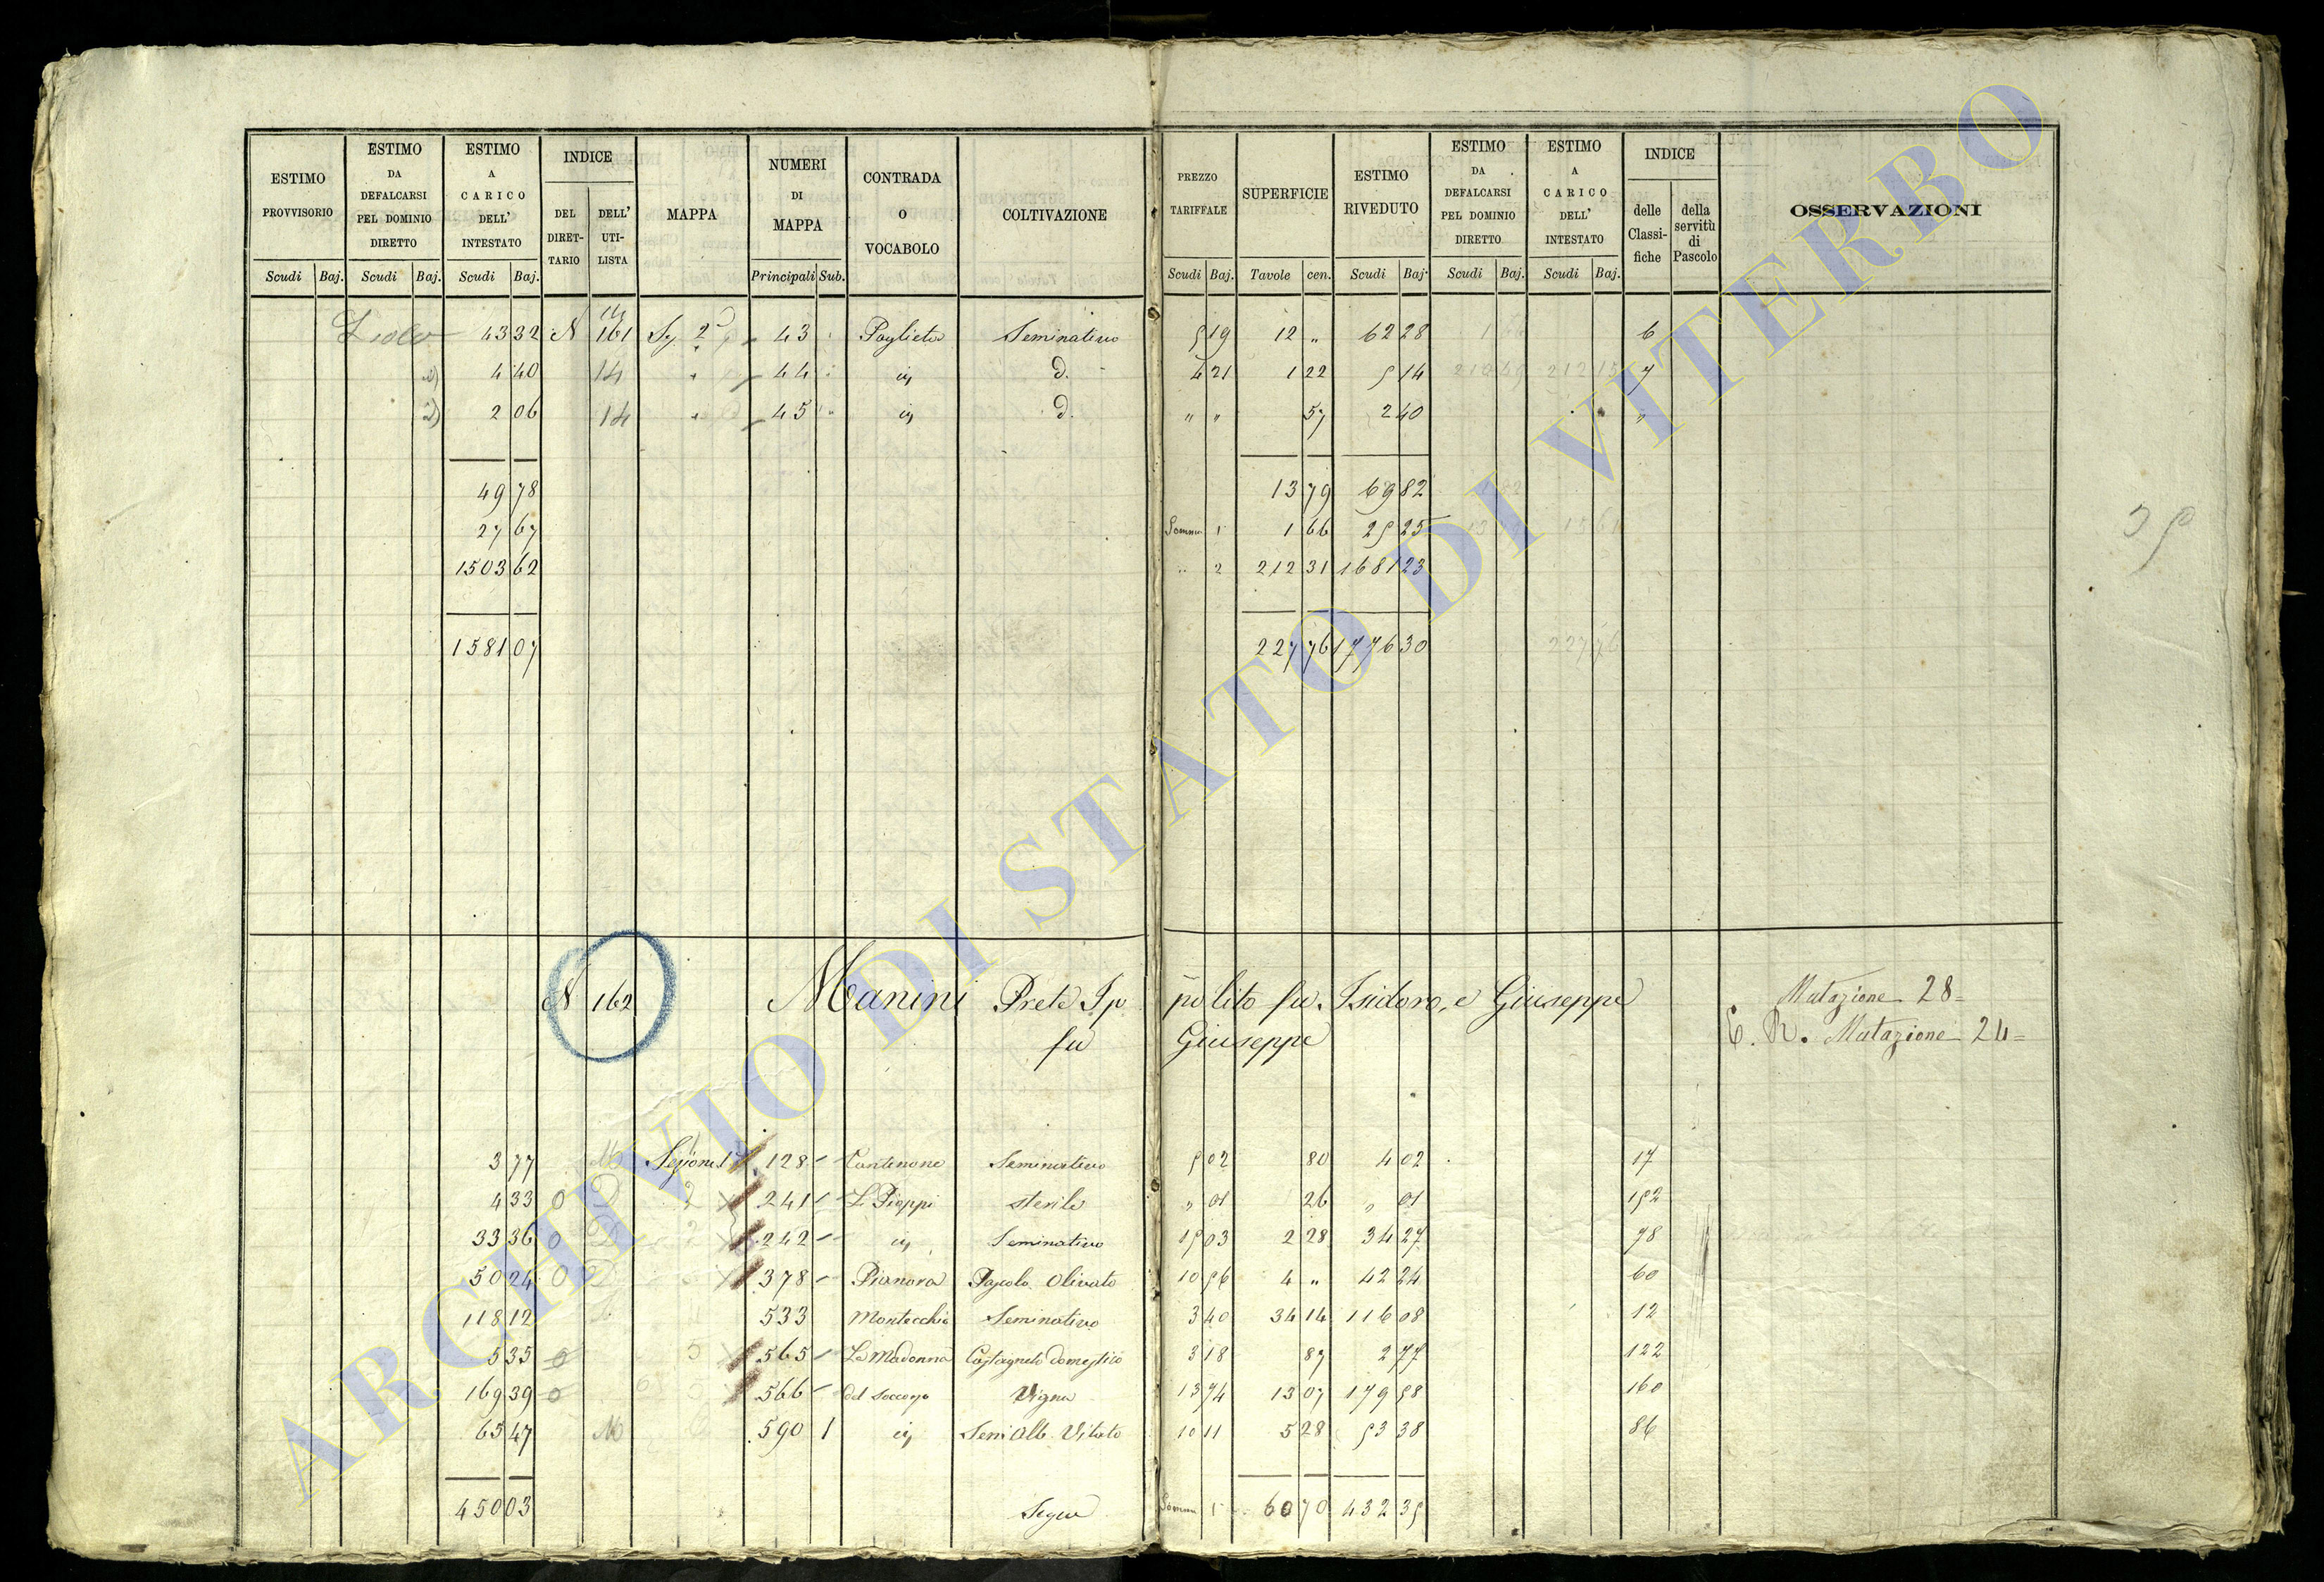 ESTIMO PROVVISORIO | ESTIMO DA DEFALCARSI PEL DOMINIO DIRETTO | ESTIMO A CARICO DELL' INTESTATO | INDICE DEL DIRETTARIO | DELL' UTILISTA | MAPPA | NUMERI DI MAPPA | CONTRADA O VOCABOLO | COLTIVAZIONE | PREZZO TARIFFALE | SUPERFICIE | ESTIMO RIVEDUTO | ESTIMO DA DEFALCARSI PEL DOMINIO DIRETTO | ESTIMO A CARICO DELL' INTESTATO | INDICE delle Classifiche | della servitù di Pascolo | OSSERVAZIONI
Scudi Baj. Scudi Baj. Scudi Baj. Principali Sub. Scudi Baj. Tavole cen. Scudi Baj. Scudi Baj. Scudi Baj.
14
43 32 N 161 Sez. 2ª 43 Paglieta Seminativo 5 19 12 " 62 28 6
4 40 14 " 44 id. d. 4 21 1 22 5 14 7
2 06 14 " 45 id. d. " " 57 2 40 "
49 78 13 79 69 82
27 67 Somma 1 1 66 25 25
1503 62 " 2 212 31 1681 23
1581 07 227 76 1776 30
N 162 Manini Prete Ip polito fu Isidoro, e Giuseppe Mutazione 28=
fu Giuseppe C. R. Mutazione 24=
3 77 M Sezione 1ª 128 Contenone Seminativo 5 02 80 4 02 17
4 33 0 D 2 241 Li Pioppi sterile " 01 26 " 01 152
33 36 0 D 2 242 id. Seminativo 15 03 2 28 34 27 78
50 24 0 D 378 Pianora Pascolo Olivato 10 56 4 " 42 24 60
118 12 533 Montecchio Seminativo 3 40 34 14 116 08 12
5 35 0 5 565 La Madonna Castagneto domestico 3 18 87 2 77 122
169 39 0 566 del Soccorso Vigna 13 74 13 07 179 58 160
65 47 M 590 1 id. Sem Alb. Vitato 10 11 5 28 53 38 86
450 03 Segue Somma 1 60 70 432 35
ARCHIVIO DI STATO DI VITERBO